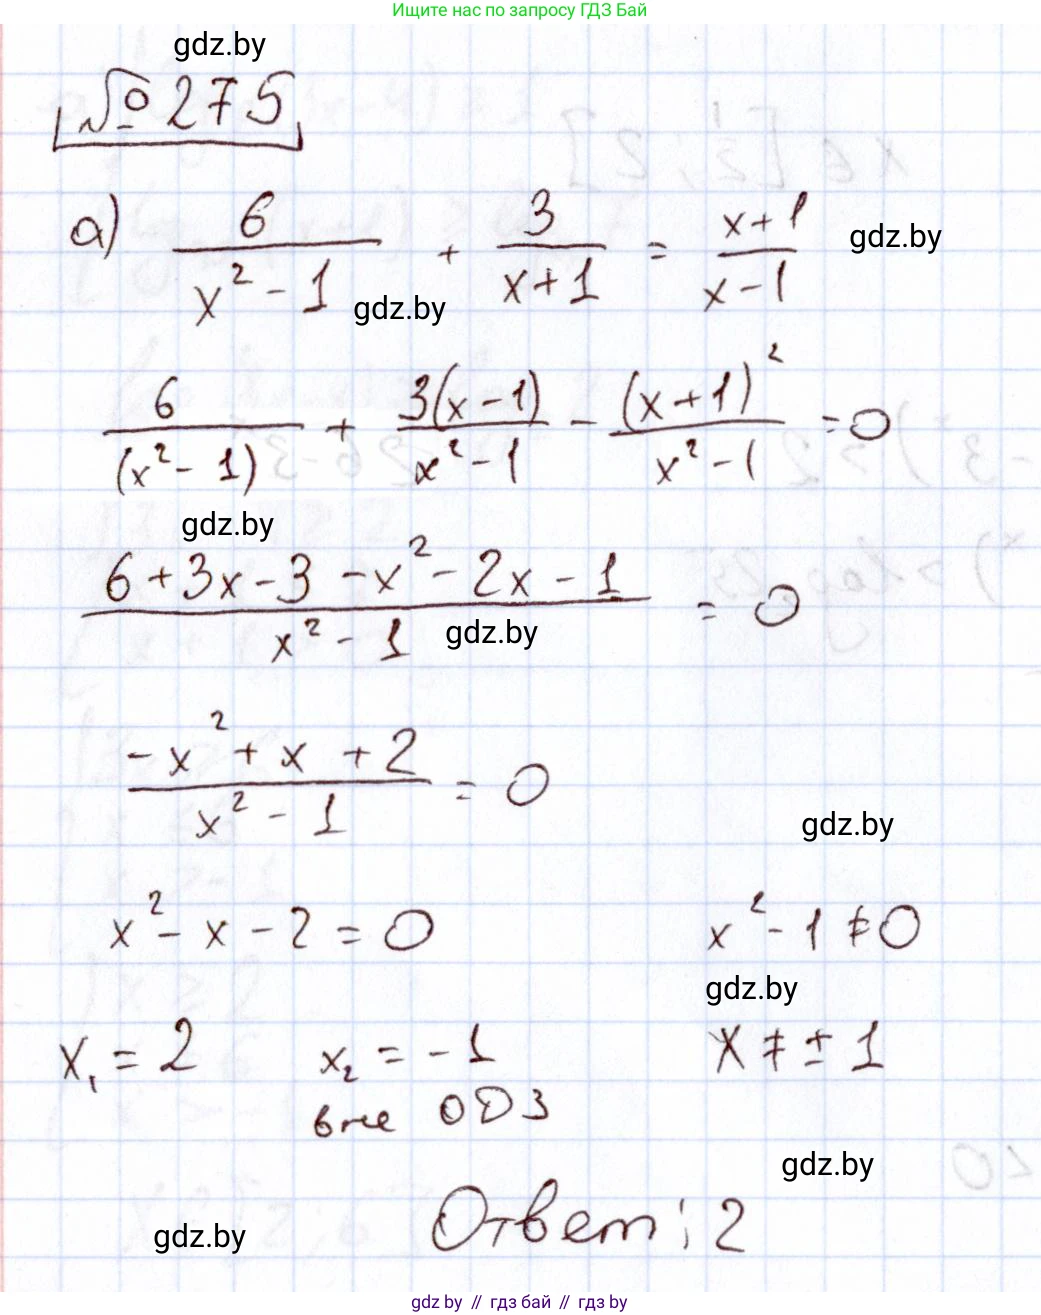 Ищите нас по запросу ГДЗ Бай
gdz.by
№ 275
а) 6/(x² - 1) + 3/(x+1) = (x+1)/(x-1)
gdz.by
gdz.by
6/(x² - 1) + 3(x-1)/(x²-1) - (x+1)²/(x²-1) = 0
gdz.by
(6+3x-3-x²-2x-1)/(x²-1) = 0
gdz.by
(-x²+x+2)/(x²-1) = 0
gdz.by
x²-x-2=0 x²-1≠0
gdz.by
x₁ = 2 x₂ = -1 x ≠ ± 1
вне ОДЗ
gdz.by
Ответ: 2
gdz.by
gdz.by // гдз бай // гдз by